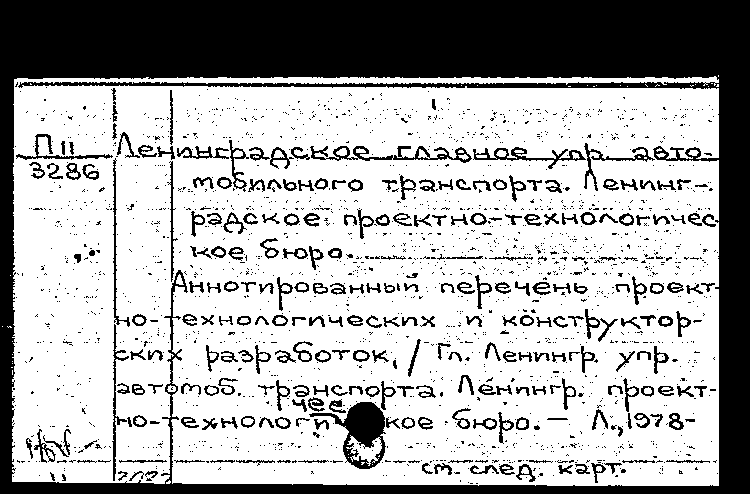 П11 Ленинградское главное упр. авто-
3286 мобильного транспорта. Ленинг-
радское проектно-технологичес
кое бюро.
Аннотированный перечень проект-
но-технологических и конструктор-
ских разработок, / Гл. Ленингр. упр.
автомоб. транспорта. Ленингр. проект-
но-технологи кое бюро. – Л., 1978-
см. след. карт.